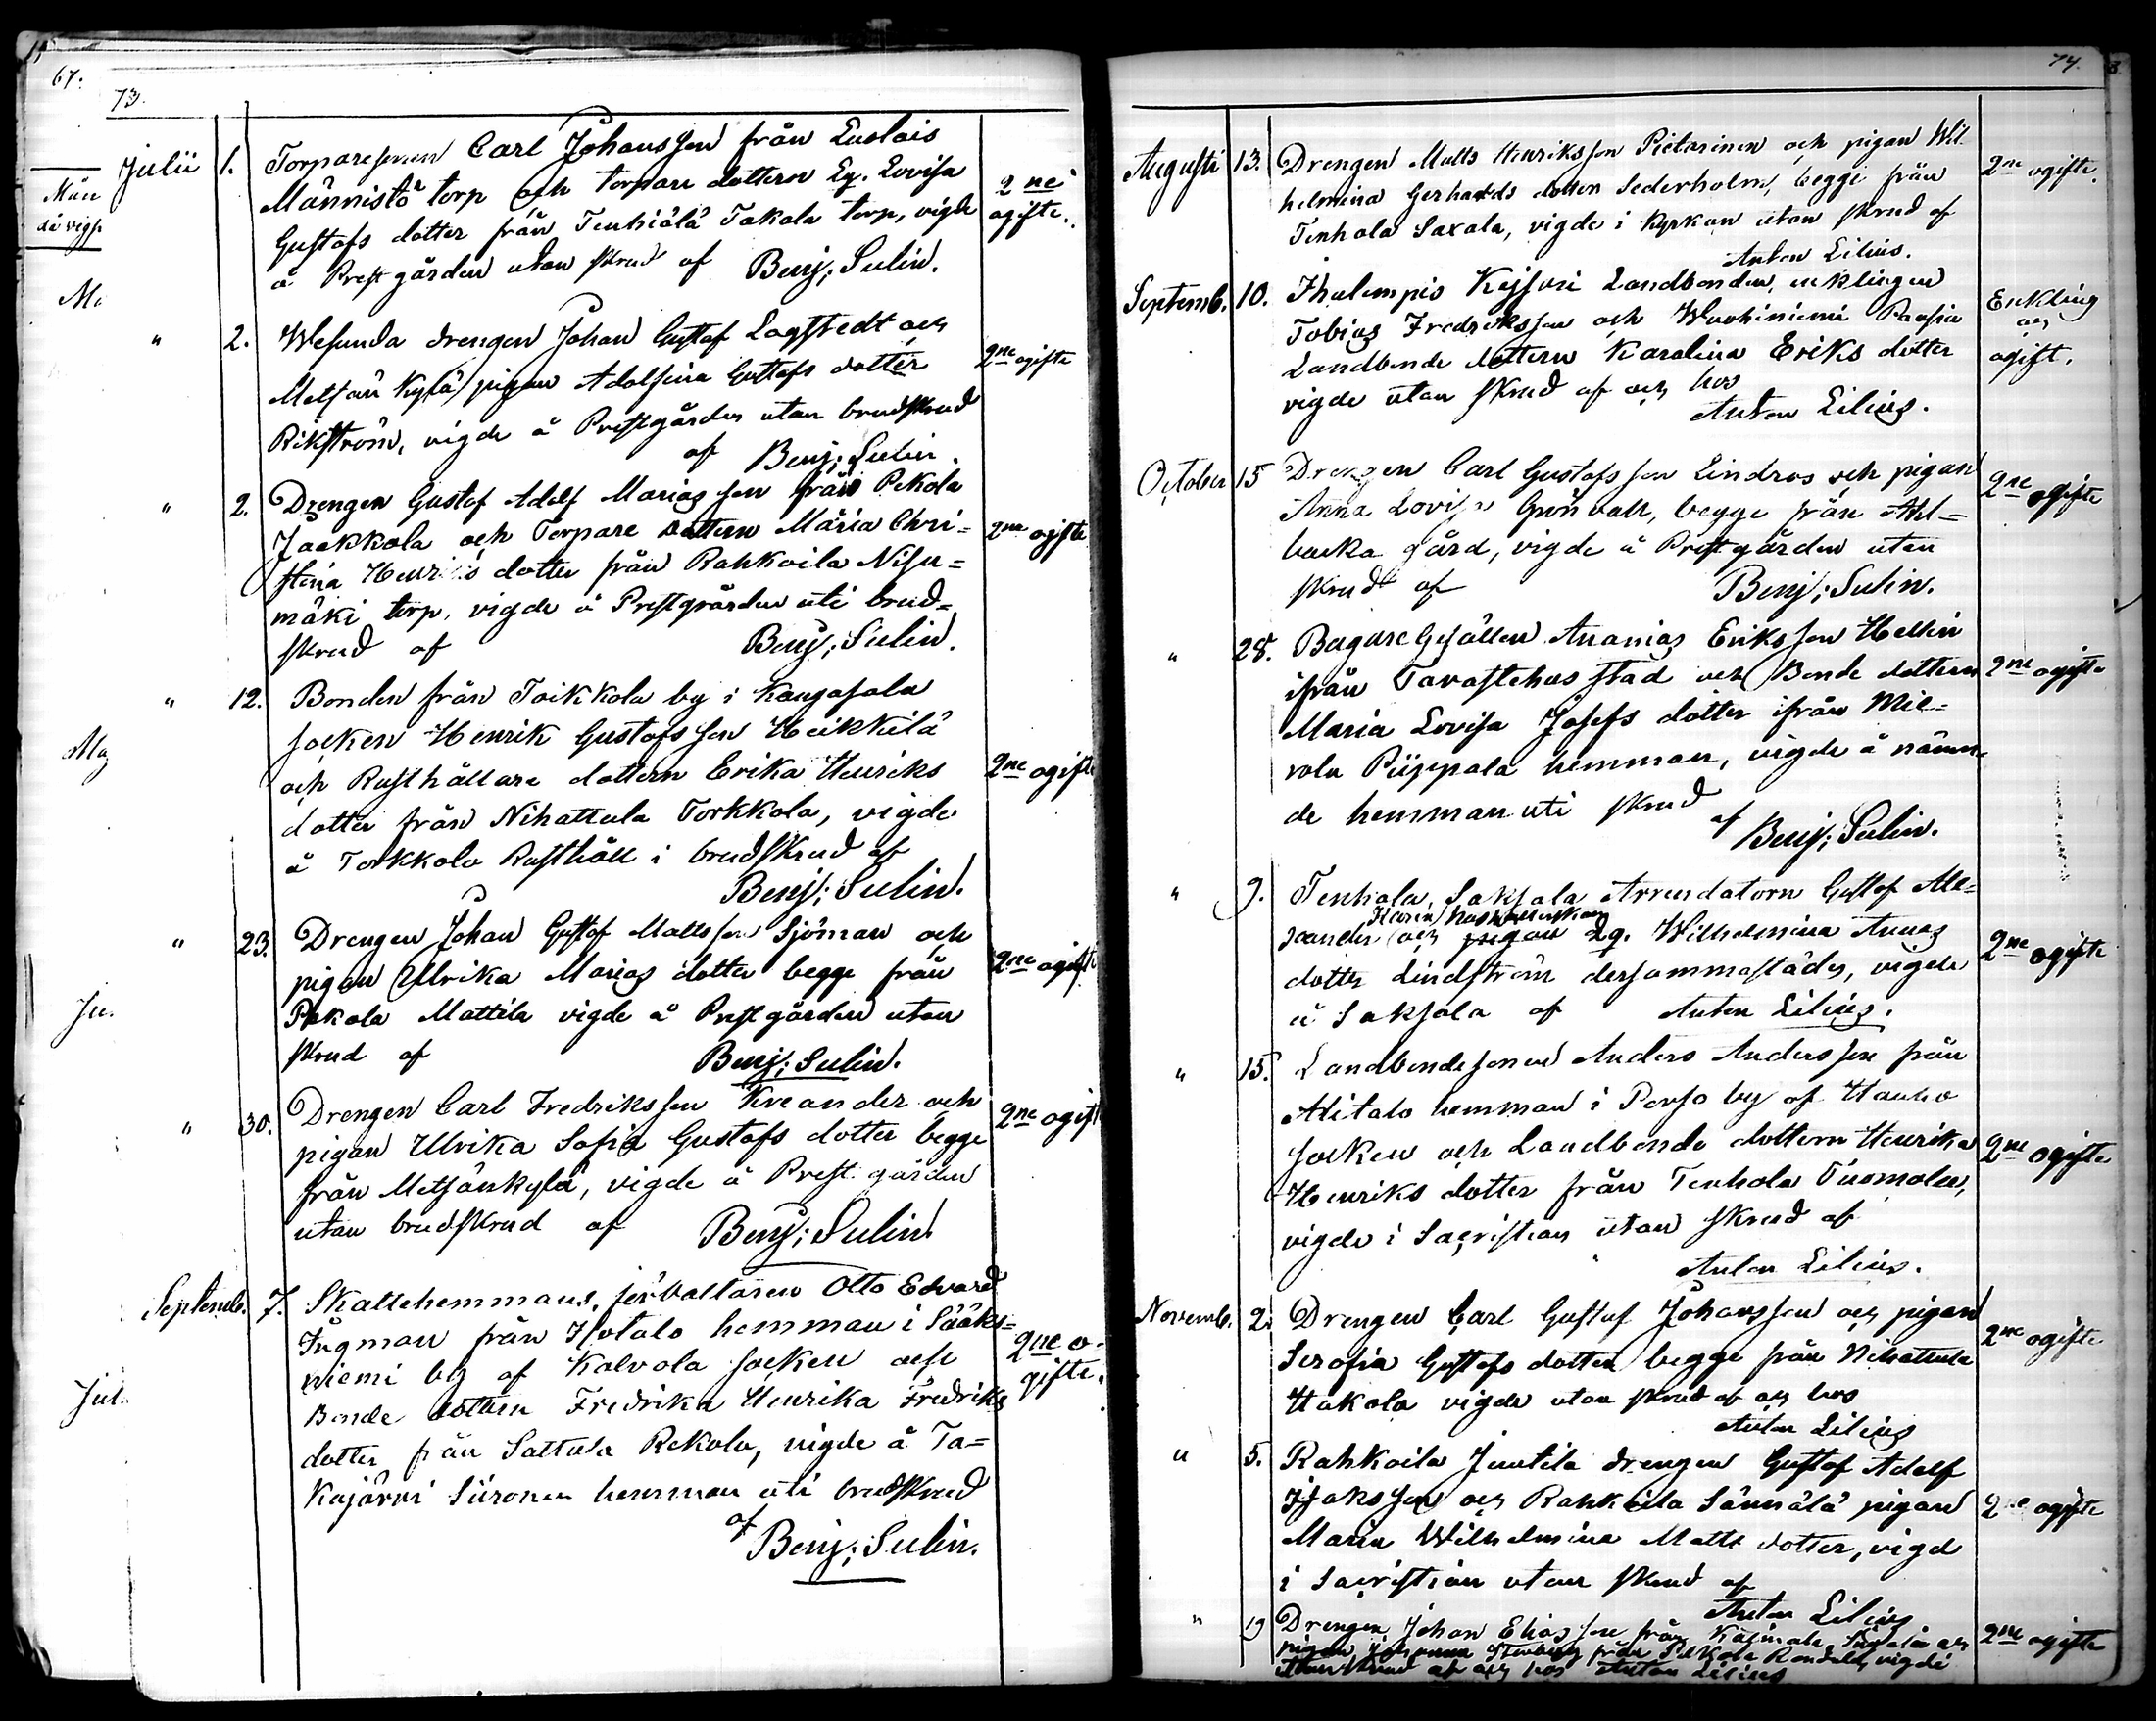 67.
73.
Julii 1. Torparesonen Carl Johansson från Luolais
Männistö torp och torpare dottern Eg. Lovisa
2ne
Gustafs dotter från Tenhiälä Takala torp, vigde
ogifte.
å Prestgården utan skrud af Benj; Sulin.
" 2. Wesunda drengen Johan Gustaf Lagstedt och
Metsän Kylä pigan Adolfina Gustafs dotter
2ne ogifte
Rikström, vigde å Prestgården utan brudskrud
af Benj; Sulin.
" 2. Drengen Gustaf Adolf Mariasson från Pekola
Jaakkola och Torpare dottern Maria Chri=
2ne ogifte
stina Henriks dotter från Rahkoila Nisu=
mäki torp, vigde å Prestgården uti brud=
skrud af Benj; Sulin.
" 12. Bonden från Toikkola by i Kangasala
socken Henrik Gustafsson Heikkilä
och Rusthållare dottern Erika Henriks
2ne ogifte
dotter från Nihattula Torkkola, vigde
å Torkkola Rusthåll i brudskrud af
Benj; Sulin.
" 23. Drengen Johan Gustaf Matsson Sjöman och
pigan Ulrika Marias dotter begge från
2ne ogifte
Pekola Mattila vigde å Prestgården utan
skrud af Benj; Sulin.
" 30. Drengen Carl Fredriksson Kreander och
2ne ogift
pigan Ulrika Sofia Gustafs dotter begge
från Metsänkylä, vigde å Prestgården
utan brudskrud af Benj; Sulin.
Septemb. 7. Skattehemmans, förvaltaren Otto Edvard
Ingman från Isotalo hemman i Sääks=
2ne o-
niemi by af Kalvola socken och
gifte.
Bonde dottern Fredrika Henrika Fredriks
dotter från Sattula Rekola, vigde å Ta=
kajärvi Siironen hemman uti brudskrud
af Benj; Sulin.
74.
Augusti 13. Drengen Matts Henriksson Pietarinen och pigan Wil-
2ne ogifte.
helmina Gerhards dotter Sederholm, begge från
Tenhola Saxala, vigde i Kyrkan utan skrud af
Anton Lilius.
Septemb. 10. Ihalempis Kejsari Landbonden, enklingen
Enkling
Tobias Fredriksson och Wuohiniemi Paavia
och
Landbonde dottern Karolina Eriks dotter
ogift.
vigde utan skrud af och hos
Anton Lilius.
October 15 Drengen Carl Gustafsson Lindros och pigan
2ne ogifte
Anna Lovisa Grönvall, begge från Ahl=
backa gård, vigde å Prestgården utan
skrud af Benj; Sulin.
" 28. Bagare Gesällen Ananias Eriksson Hellin
ifrån Tavastehus stad och Bonde dottern
2ne ogifte
Maria Lovisa Josefs dotter ifrån Mie=
rola Piippala hemman, vigde å nämn-
de hemman uti skrud
af Benj; Sulin.
" 9. Tenhola, Saksala Arrendatorn Gustaf Ale=
xander och pigan Eg. Wilhelmina Annas
2ne ogifte
dotter Lindström dersammastädes, vigde
å Saksala af Anton Lilius.
" 15. Landbondesonen Anders Andersson från
Alitalo hemman i Porso by af Hauho
socken och Landbonde dottern Henrika
2ne ogifte
Henriks dotter från Tenhola Tuomola,
vigde i Sacristian utan skrud af
Anton Lilius.
Novemb. 2. Drengen Carl Gustaf Johansson och pigan
2ne ogifte
Serafia Gustafs dotter begge från Nihattula
Hakala vigde utan skrud af och hos
Anton Lilius
" 5. Rahkoila Juntila drengen Gustaf Adolf
Isaksson och Rahkoila Sännälä pigan
2ne ogifte
Maria Wilhelmina Matts dotter, vigd
i Sacristian utan skrud af
Anton Lilius
" 19 Drengen Johan Eliasson från och
2ne ogifte
pigan Johanna Stenberg från Pekola vigde
utan skrud af och hos Anton Lilius